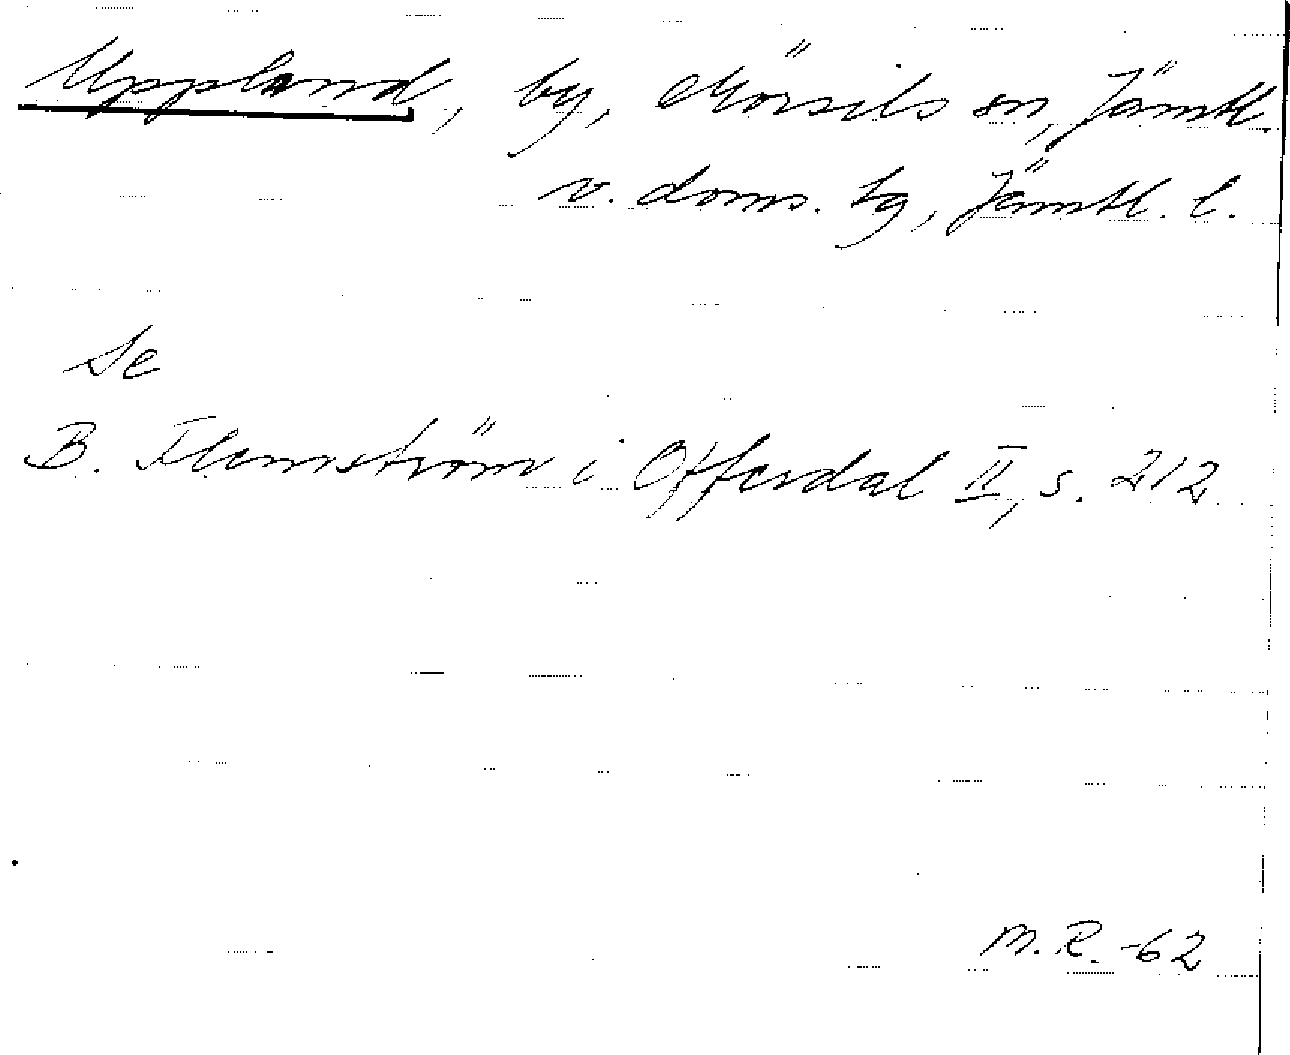 Uppland, by, Mörsils sn, Jämtl.
v. doms. hg, Jämtl. l.
Se
B. Flemström i Offerdal II, s. 212
M.R. -62